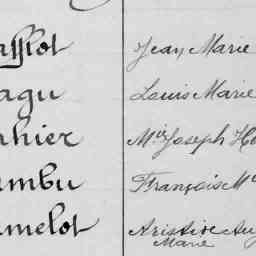 assiot Jean Marie
agu Louis Marie
ahier Mie Joseph
ambu François Me
amelot Aristide Au
Marie